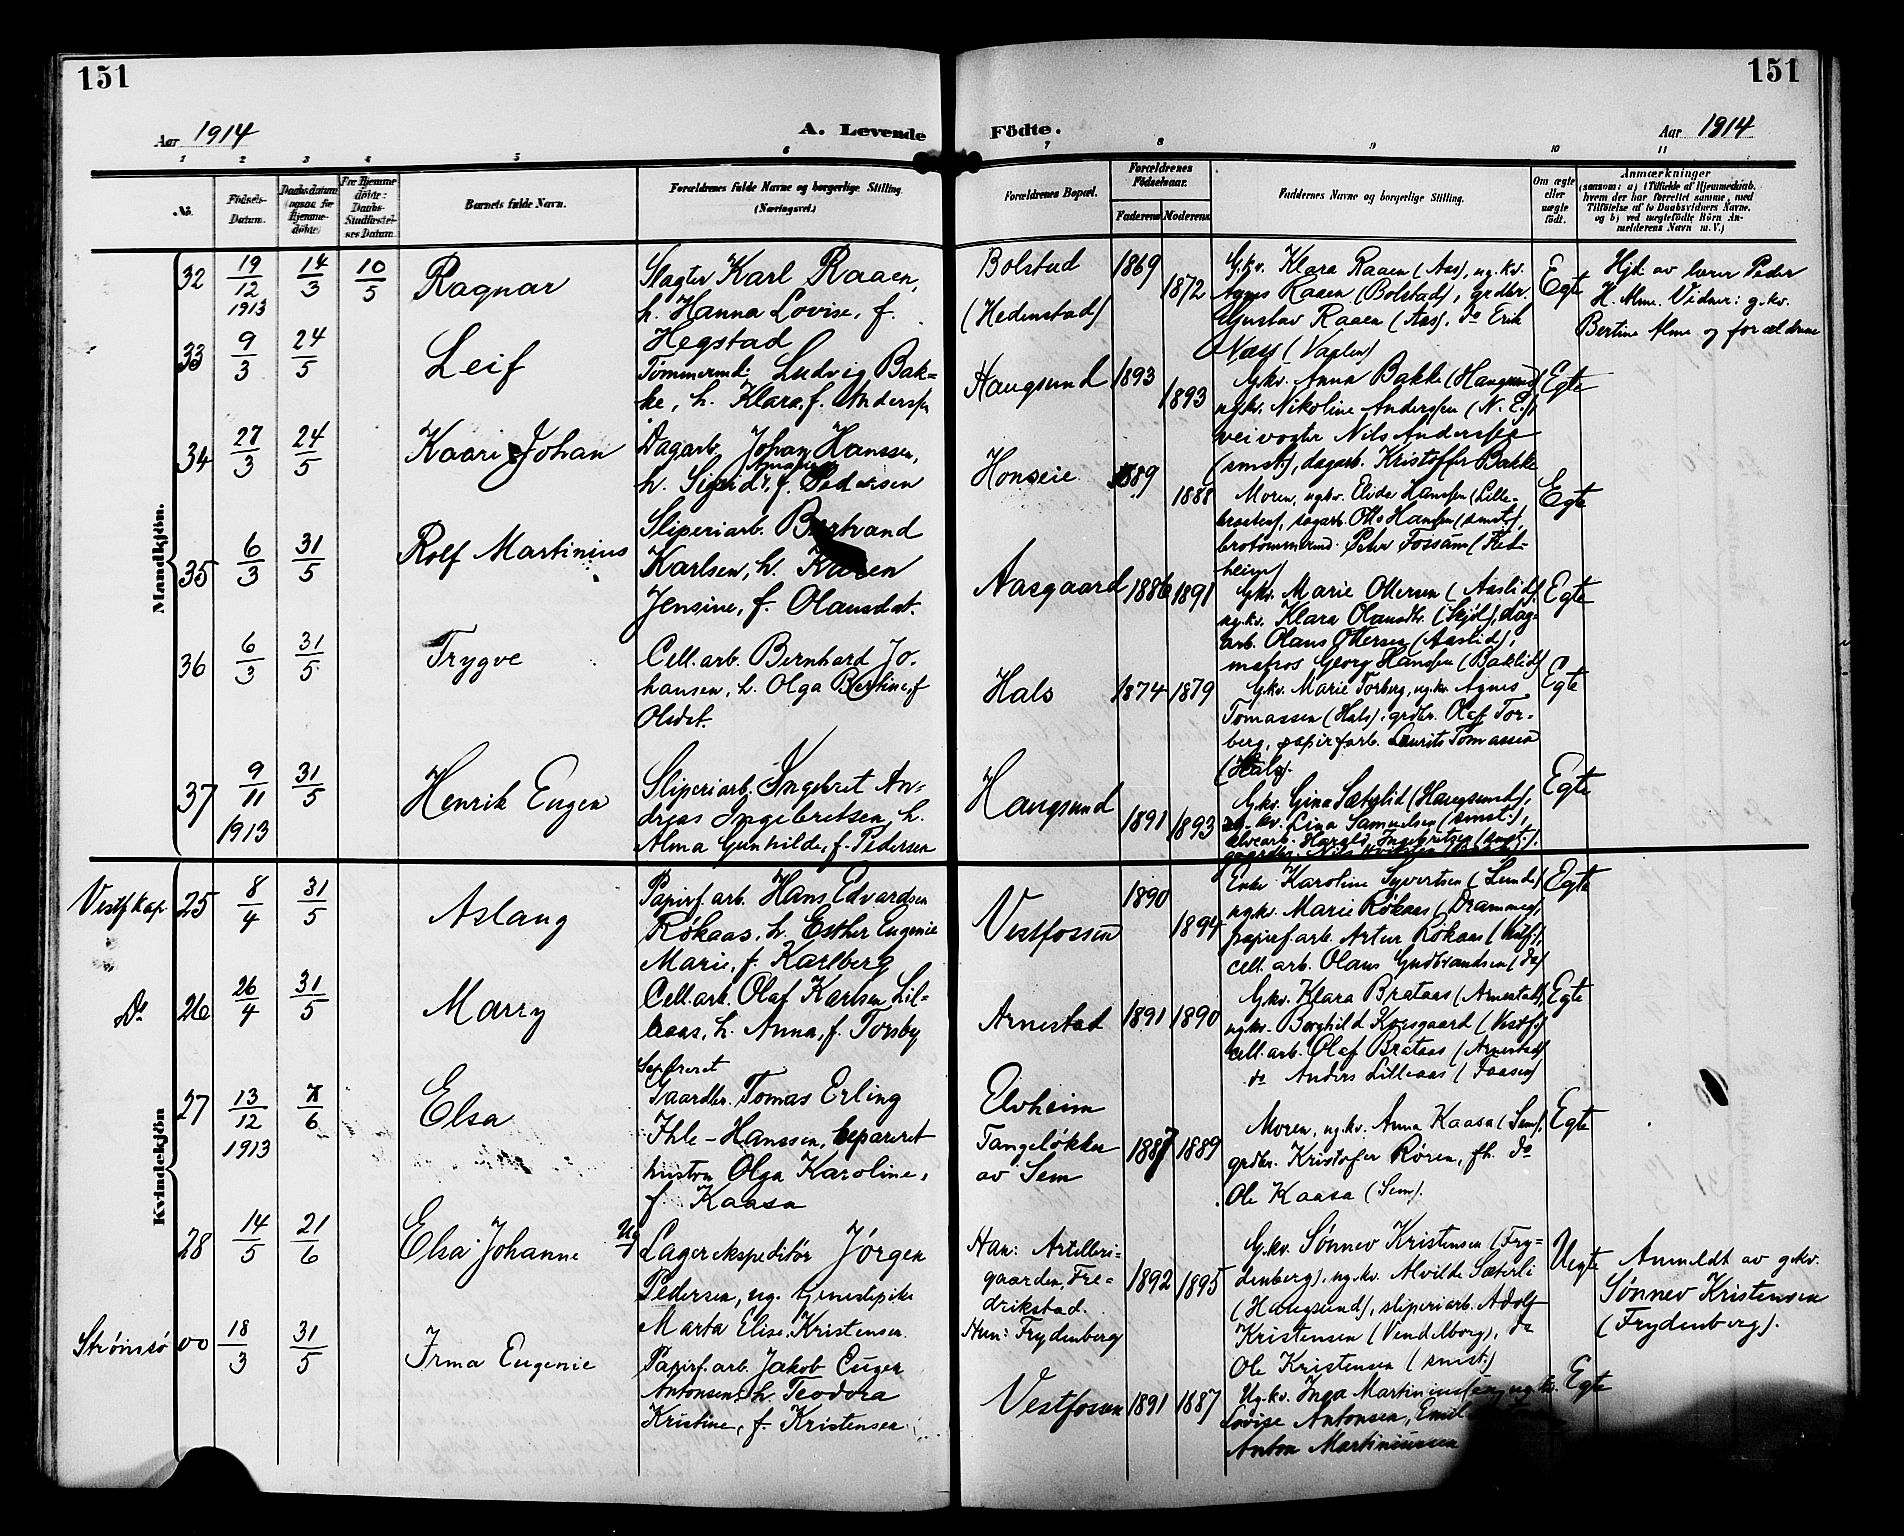 151
151
Aar 1914
A. Levende
Födte.
Aar 1914
1 2 3 4 5 6 7 8 9 10 11
No.
Födsels-
Datum.
Daabsdatum
(ogsaa for
Hjemme-
döbte)
For Hjemme-
döbte:
Daabs-
Stadfæstel-
ses Datum.
Barnets fulde Navn.
Forældrenes fulde Navne og borgerlige Stilling.
(Næringsvei.)
Forældrenes Bopæl.
Forældrenes
Födselsaar.
Faderens Moderens
Faddernes Navne og borgerlige Stilling.
Om ægte
eller
uægte
födt.
Anmærkninger
(saasom: a) i Tilfælde af Hjemmedaab,
hvem der har forrettet samme, med
Tilföielse af to Daabsvidners Navne,
og b) ved uægtefödte Börn An-
melderens Navn m. V.)
Mandkjön.
32
19/12 1913
14/3
10/5
Ragnar
Slagter Karl Raaen,
h. Hanna Lovise, f.
Hegstad
Bolstad
(Hedenstad)
1869
1872
Gkv. Klara Raaen (Aas), ug.kv.
Agnes Raaen (Bolstad), grdbr.
Gustav Raaen (Aas), do Erik
Næss (Varlen)
Egte
Hjd. av lærer Peder
H. Alme. Vidner: g.kv.
Bertine Alme og forældrene
33
9/3
24/5
Leif
Tømmermd. Ludvig Bak-
ke, h. Klara, f. Anderssen
Haugsund
1893
1893
Gkv. Anna Bakke (Haugsund)
ug.kv. Nikoline Anderssen (N. E.),
veivogter Nils Anderssen
(smst.), dagarb. Kristoffer Bakke
Egte
34
27/3
24/5
Kaare Johan
Dagarb. Johan Hanssen,
h. Sigrid, f. Pedersen
Honseie
1889
1888
Moren, ug.kv. Elida Hanssen (Lille-
braaten), sagarb. Otto Hanssen (smst.),
brotømmermd. Peter Fossum (Fred-
heim)
Egte
35
6/3
31/5
Rolf Martinius
Sliperiarb. Bertrand
Karlsen, h. Karen
Jensine, f. Olausdat.
Aasgaard
1886
1891
Gkv. Marie Ottersen (Aaslid)
ug.kv. Klara Olausdtr. (Skjøl), dag-
arb. Olaus Ottersen (Aaslid),
matros Georg Hansen (Baklid)
Egte
36
6/3
31/5
Trygve
Cell. arb. Bernhard Jo-
hansen, h. Olga Bertine, f.
Olsdat.
Hals
1874
1879
Gkv. Marie Torberg, ug.kv. Agnes
Tomassen (Hals), grdbr. Olaf Tor-
berg, papirfarb. Laurits Tomassen
(Hals).
Egte
37
9/11 1913
31/5
Henrik Eugen
Sliperiarb. Ingebret An-
dreas Ingebretsen, h.
Alma Gunhilde, f. Pedersen
Haugsund
1891
1893
Gkv. Gina Sæterlid (Haugsund),
kv. Lina Samuelsen (smst.),
elvearb. Harald Ingebretsen (smst.),
Egte
Kvindekjön
Vestf. kap
25
8/4
31/5
Aslaug
Papirf. arb. Hans Edvardsen
Røkaas, h. Esther Eugenie
Marie, f. Karlberg
Vestfossen
1890
1894
Enke Karoline Syvertsen (Lunde)
ug.kv. Marie Røkaas (Drammen),
papirf. arb. Artur Røkaas (Vestf.),
cell. arb. Olaus Gudbrandsen (do)
Egte
Do
26
26/4
31/5
Marry
Cell. arb. Olaf Karlsen Lil-
leaas, h. Anna, f. Torsby
Arnestad
1891
1890
Gkv. Klara Brataas (Arnestad),
ug.kv. Borghild Korsgaard (Vestf.)
cell. arb. Olaf Brataas (Arnestad)
do Anders Lilleaas (Faasen)
Egte
27
13/12 1913
7/6
Elsa
Sepereret
Gaardbr. Tomas Erling
Ihle-Hanssen, separeret
hustru Olga Karoline,
f. Kaasa
Elvheim
Tangeløkken
av Sem
1887
1889
Moren, ug.kv. Anna Kaasa (Sem),
grdbr. Kristofer Røren, fh. do
Ole Kaasa (Sem).
Egte
28
14/5
21/6
Elsa Johanne
Ug
Lagerekspeditør Jørgen
Pedersen, ug. tjenestepike
Marta Elise Kristensen.
Han: Artilleri-
gaarden, Fre-
drikstad.
Hun: Frydenberg
1892
1895
Gkv. Sønnev Kristensen (Fry-
denberg), ug.kv. Alvilde Sæterli
(Haugsund), sliperiarb. Adolf
Kristensen (Vendelborg), do
Ole Kristensen (smst.)
Uegte
Anmeldt av g.kv.
Sønnev Kristensen
(Frydenberg).
Strømsø
00
18/3
31/5
Irma Eugenie
Papirf. arb. Jakob Euger
Antonsen, h. Teodora
Kristine, f. Kristensen
Vestfossen
1891
1887
Ug.kv. Inga Martiniussen, ug.kv.
Lovise Antonsen, Emil
Anton Martiniussen
Egte